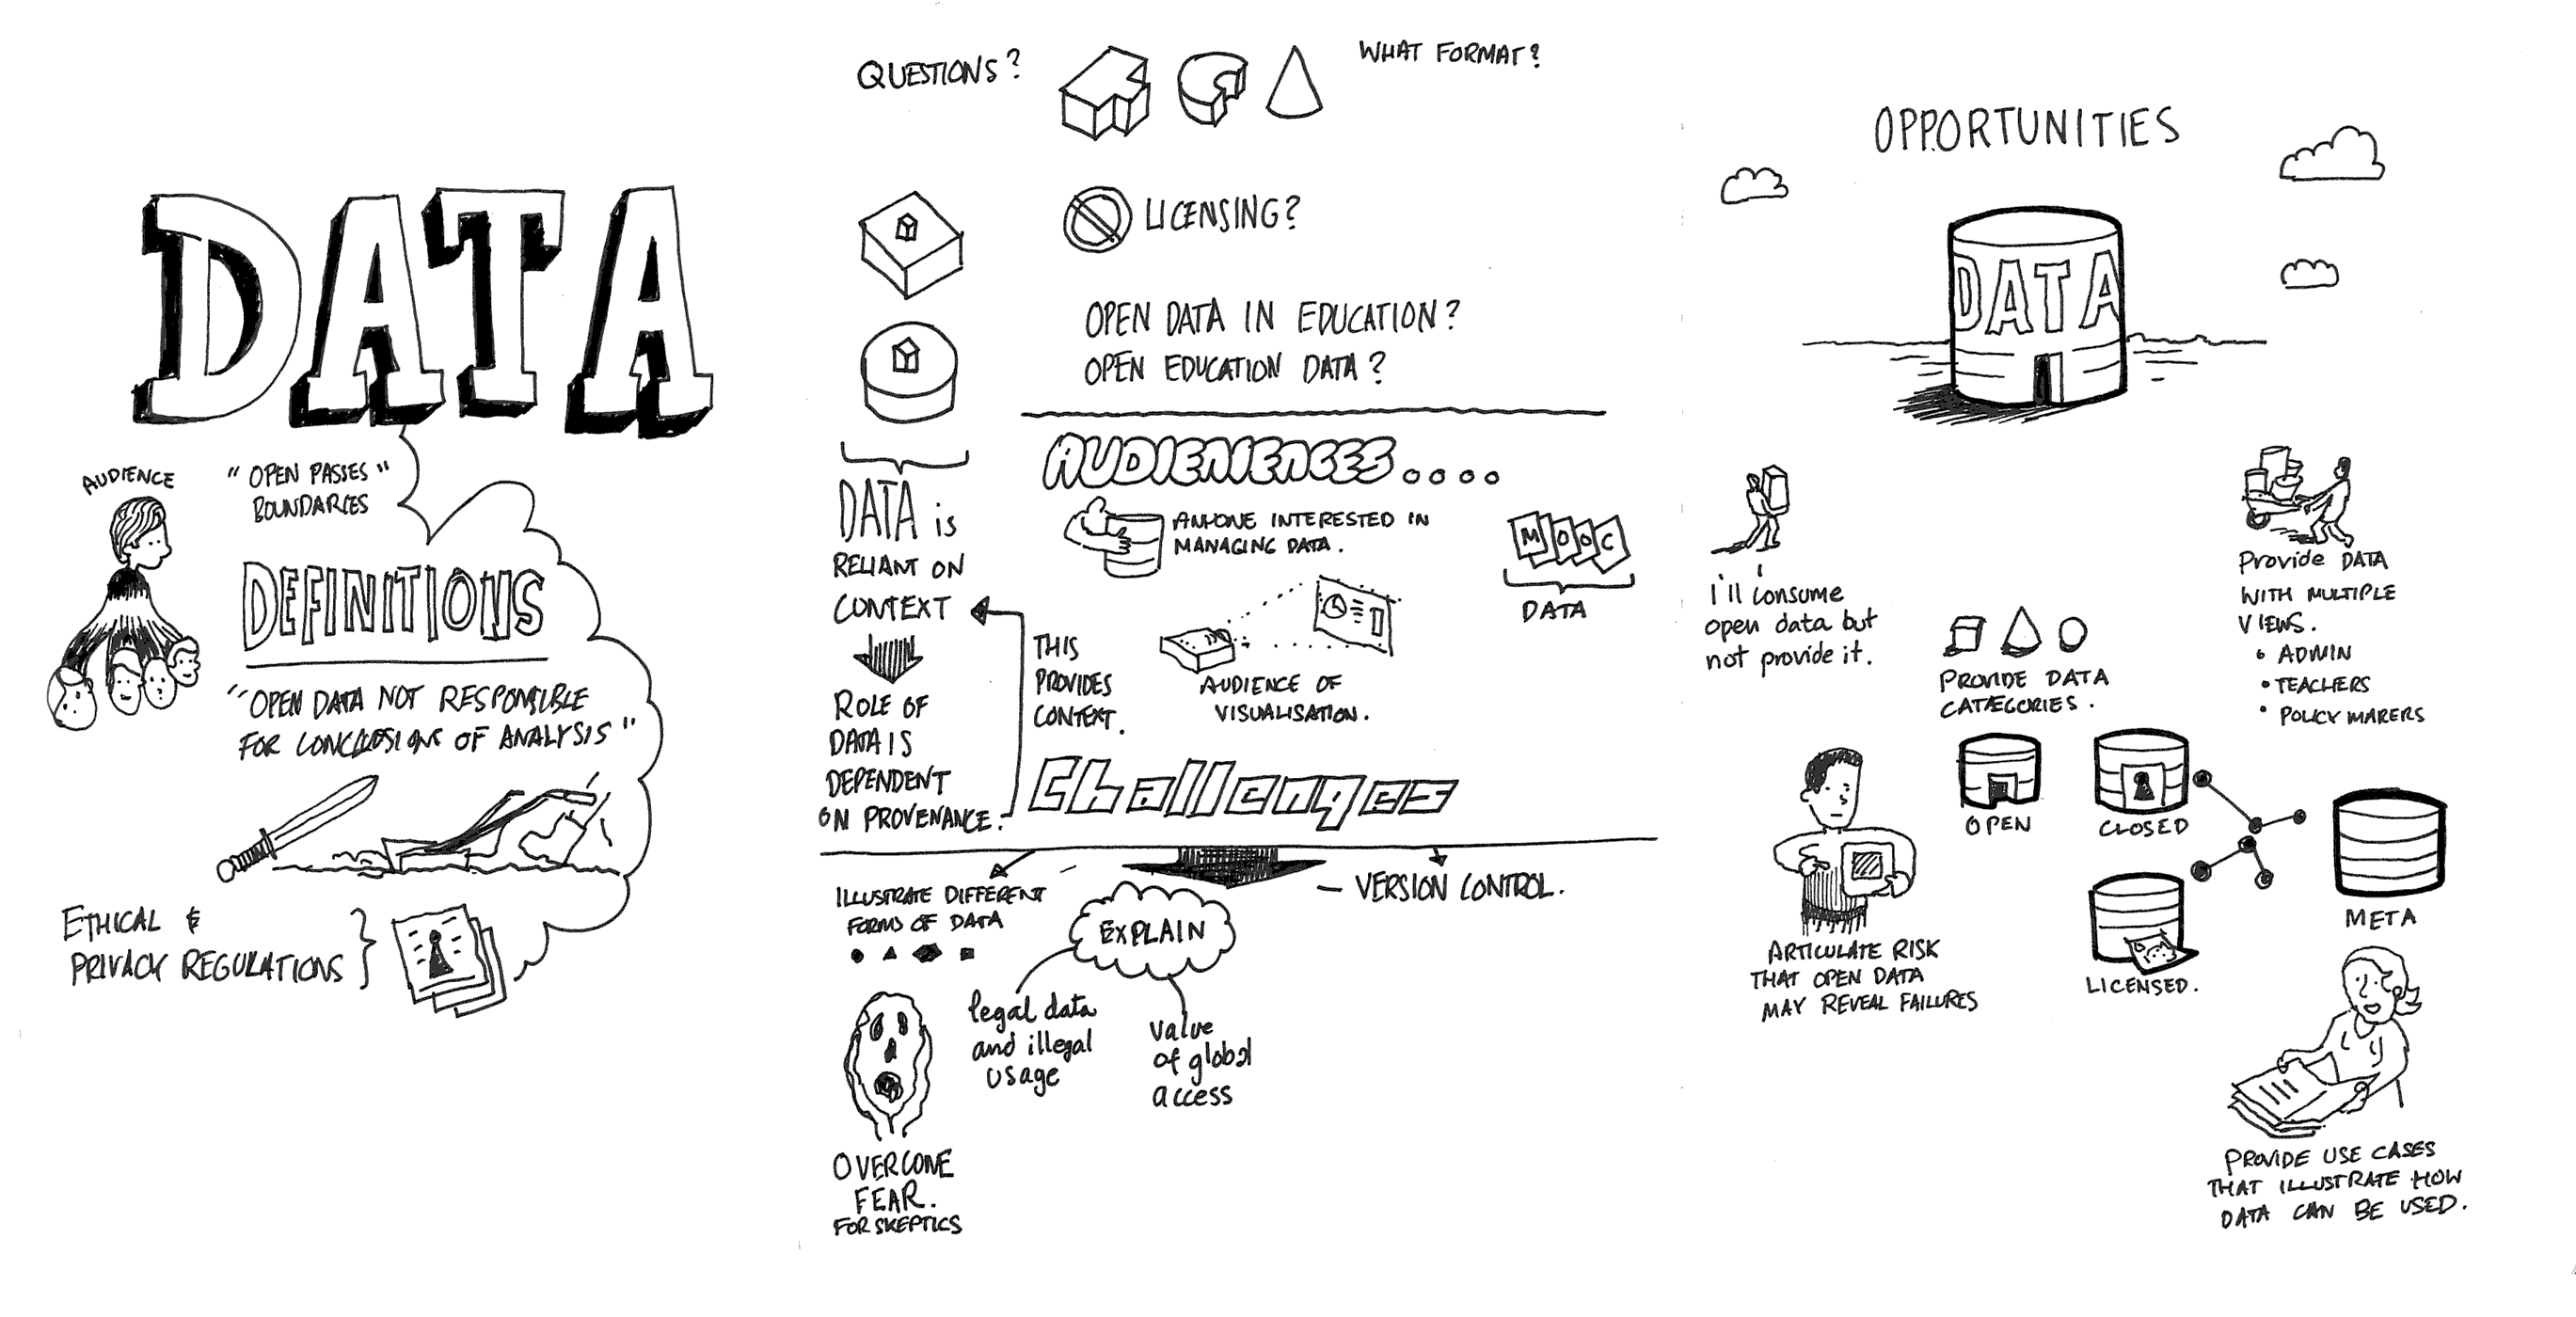 DATA
AUDIENCE
" OPEN PASSES "
BOUNDARIES
DEFINITIONS
"OPEN DATA NOT RESPONSIBLE
FOR CONCLUSIONS OF ANALYSIS"
ETHICAL &
PRIVACY REGULATIONS
QUESTIONS?
WHAT FORMAT?
LICENSING?
OPEN DATA IN EDUCATION?
OPEN EDUCATION DATA?
DATA is
RELIANT ON
CONTEXT
ROLE OF
DATA IS
DEPENDENT
ON PROVENANCE.
THIS
PROVIDES
CONTEXT.
AUDIENIENCES....
ANYONE INTERESTED IN
MANAGING DATA.
MOOC
DATA
AUDIENCE OF
VISUALISATION.
Challenges
ILLUSTRATE DIFFERENT
FORMS OF DATA
EXPLAIN
legal data
and illegal
usage
value
of global
access
– VERSION CONTROL.
OVERCOME
FEAR.
FOR SKEPTICS
OPPORTUNITIES
DATA
i'll consume
open data but
not provide it.
PROVIDE DATA
CATEGORIES.
Provide DATA
WITH MULTIPLE
VIEWS.
• ADMIN
• TEACHERS
• POLICY MAKERS
OPEN
CLOSED
LICENSED.
META
ARTICULATE RISK
THAT OPEN DATA
MAY REVEAL FAILURES
PROVIDE USE CASES
THAT ILLUSTRATE HOW
DATA CAN BE USED.